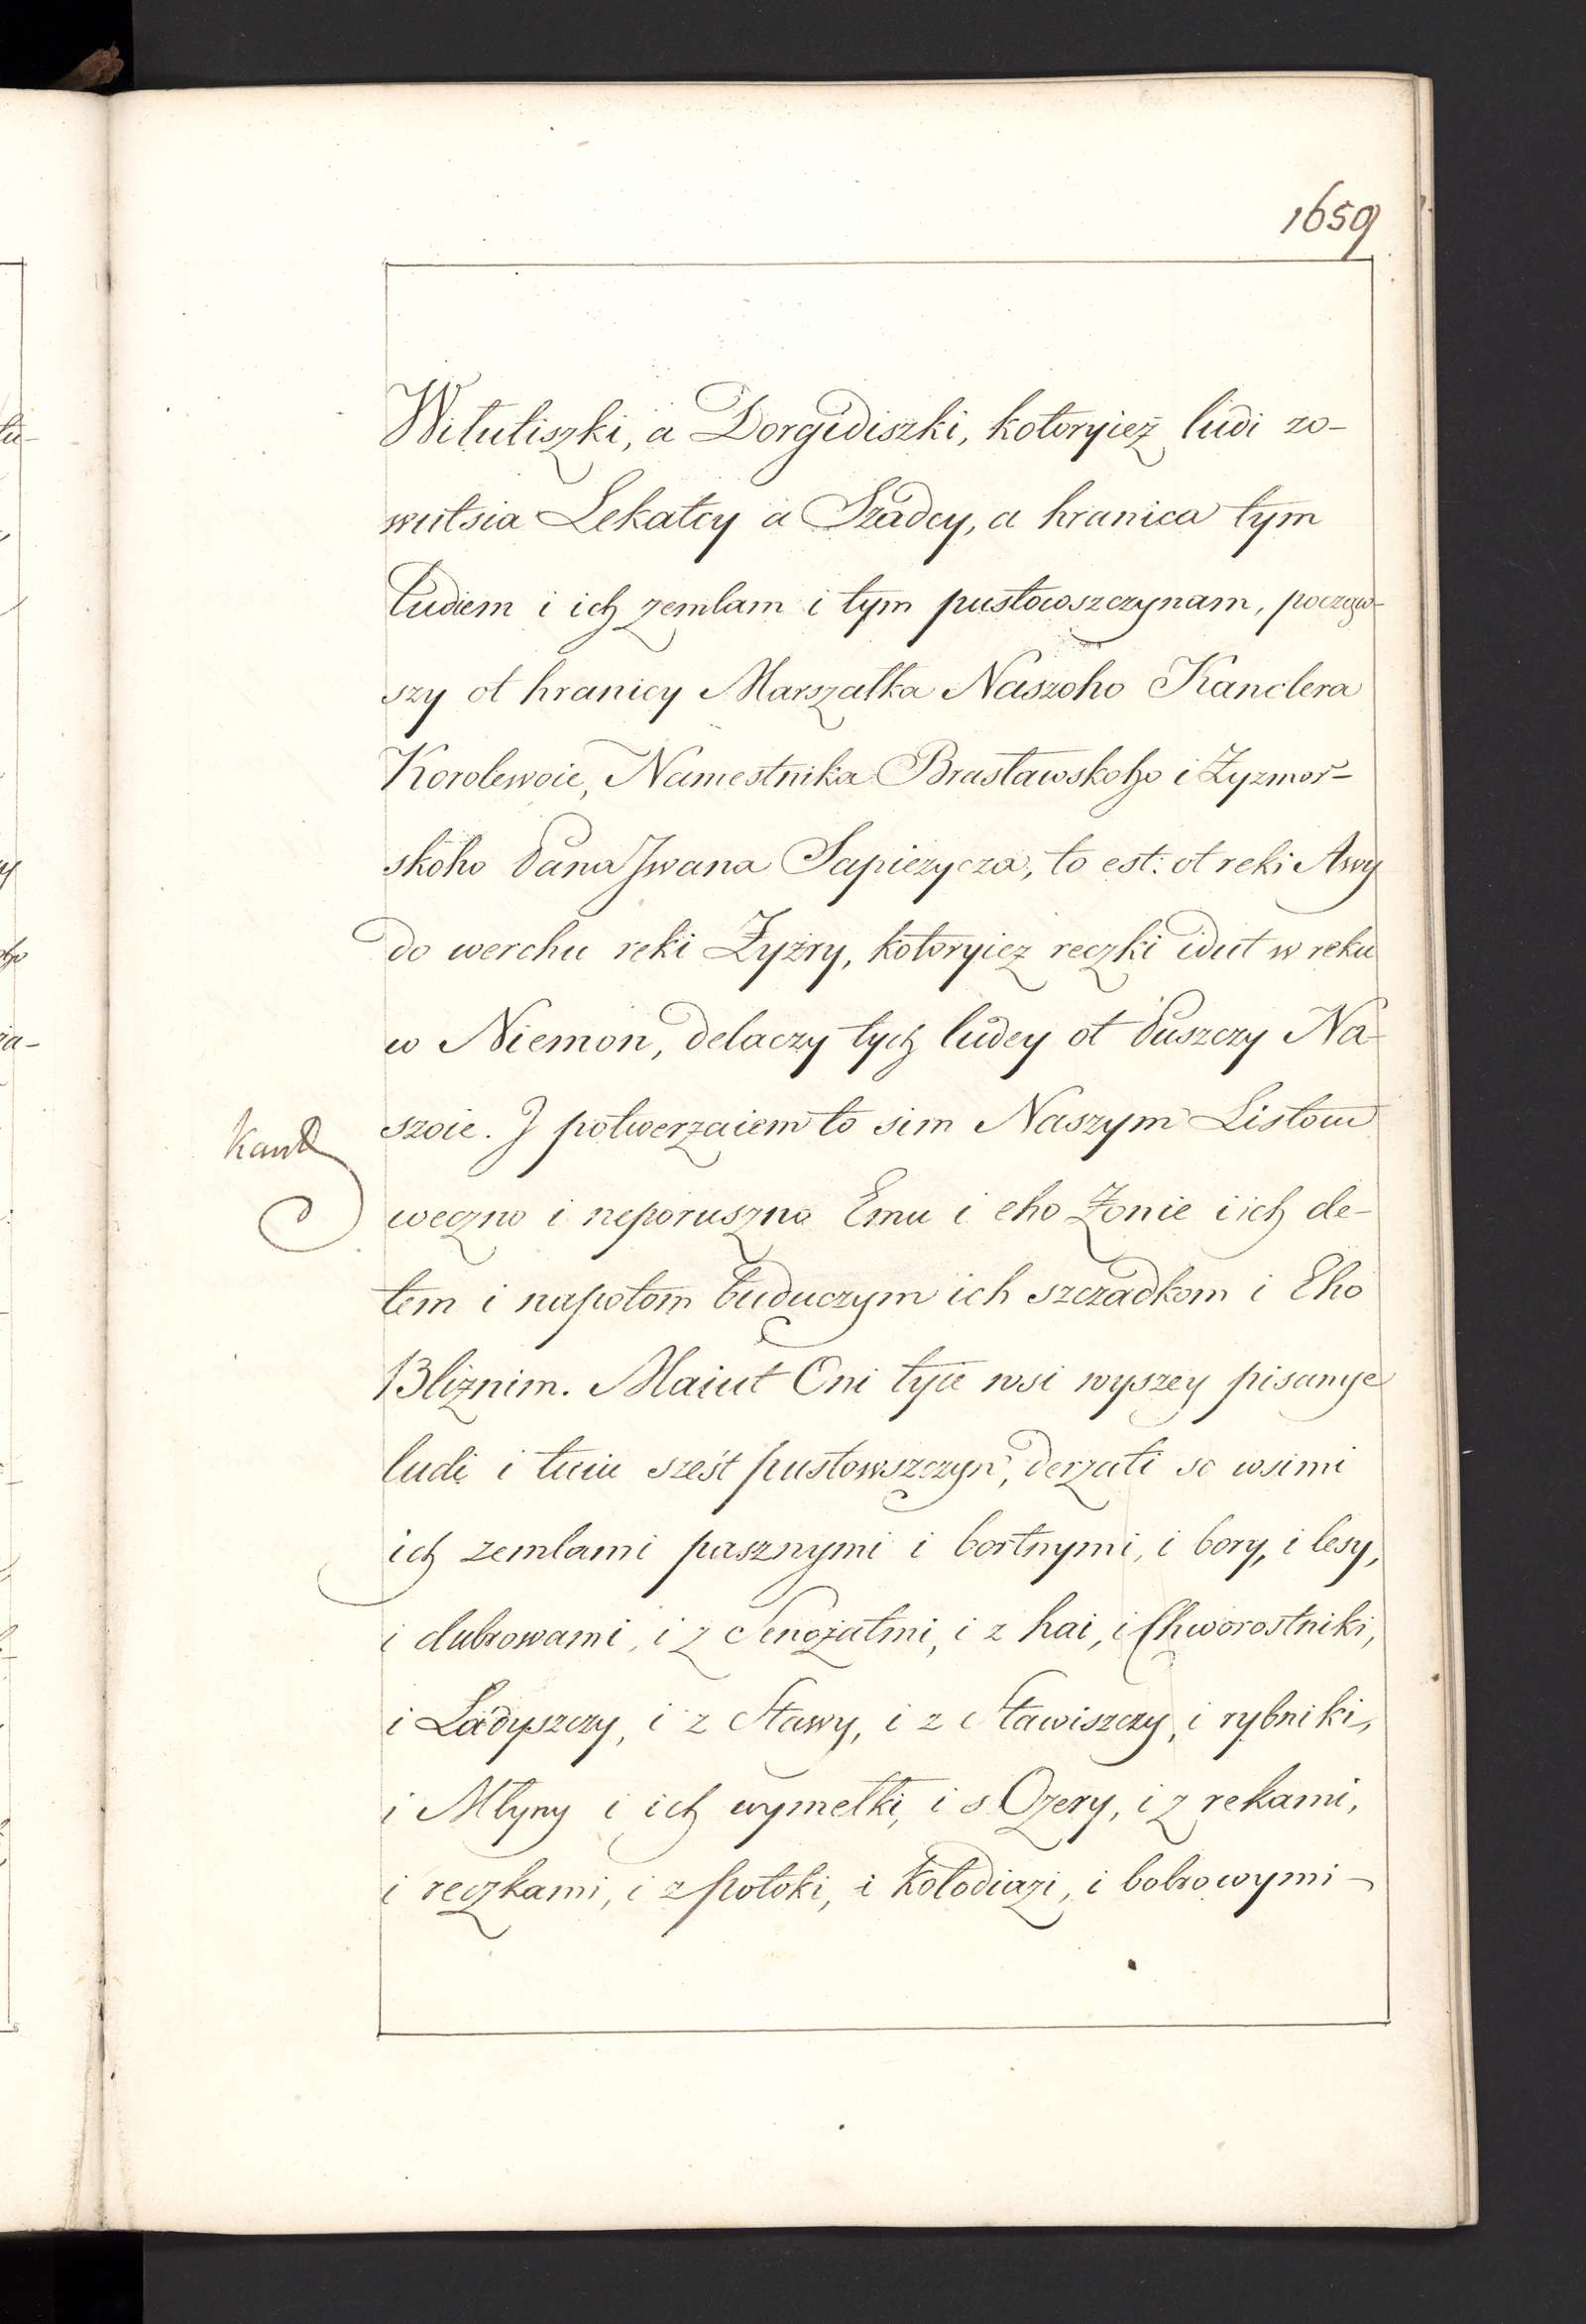 1659
Wituliszki, a Dorgidiszki, kotoryież ludi zo-
wutsia Lekatcy a Szadcy, a hranica tym
Ludiem i ich zemlam i tym pustowszczynam, począw-
szy ot hranicy Marszałka Naszoho Kanclera
Korolewoie, Namestnika Brasławskoho i Żyzmor-
skoho Pana Jwana Sapieżycza, to est: ot reki Awy
do werchu reki Żyżry, kotoryież reczki idut w reku
w Niemon, delaczy tych ludey ot Puszczy Na-
szoie. J potwerżaiem to sim Naszym Listom
weczno i neporuszno Emu i eho Żonie i ich de-
tem i napotom buduczym ich szczadkom i Eho
Bliźnim. Maiut Oni tyie wsi wyszey pisanye
ludi i tuiu sześt pustowszczyn, derżati so wsimi
ich zemlami pasznymi i bortnymi, i bory, i lesy,
i dubrowami, i z Senożatmi, i z hai, i Chworostniki,
i Ladyszczy, i z Stawy, i z Stawiszczy, i rybniki,
i Młyny i ich wymełki, i s Ozery, i z rekami,
i reczkami, i z potoki, i kołodiazi, i bobrowymi